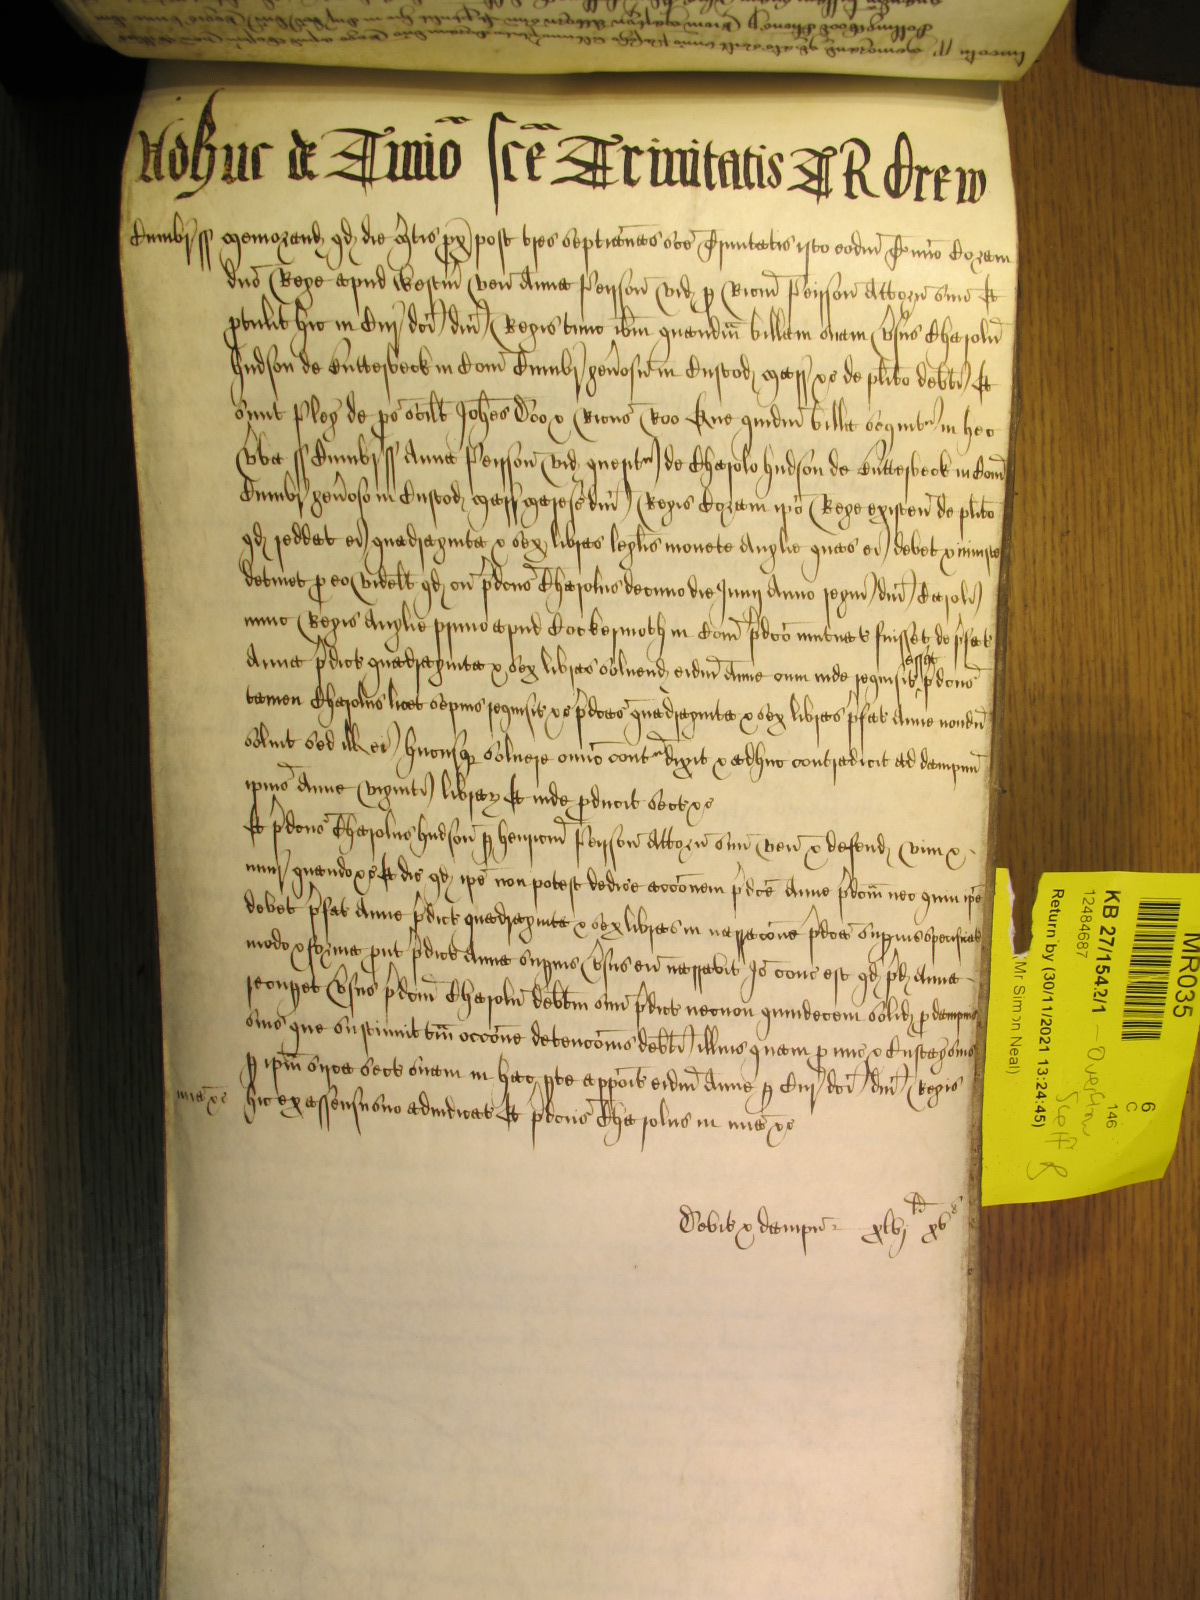 Adhuc de T'mio sce Trinitatis T R Drew
Cumbr ss Memorand qd die m'tis px post tres septianas sce Trinitatis isto eodm T'mio Coram
dno Rege apud Westm ven Anna Peirson vid p Ricm Peirson Attorn suu Et
ptulit hic in Cur dci dni Regis tunc ibm quandm billam suam v'sus Charolu
Hudson de Buttesbeck in Com Cumbr gen'osum in Custod Marr &c de plito debti Et
sunt pleg de ps scilt Johes Doo & Ricus Roo Que quidm billa sequitr in hec
v'ba ss Cumbr ss Anna Peirson vid queritr de Charolo Hudson de Buttesbeck in Com
Cumbr gen'oso in Custod Marr Maresc dni Regis Coram ipo Rege existen de plito
qd reddat ei quadraginta & sex libras leglis monete Anglie quas ei debet & iniuste
detinet p eo videlt qd cu p'dcus Charolus decimo die Junij Anno regni dni Caroli
nunc Regis Anglie primo apud Cockermoth in Com p'dco mutuat fuisset de p'fat
Anna p'dict quadraginta & sex libras solvend eidm Anne cum inde requisit esset p'dcus
tamen Charolus licet sepius requisit &c p'dcas quadraginta & sex libras p'fat Anne nondu
solvit sed ill ei hucusq solvere omio contrdixit & adhuc contradicit ad dampnu
ipius Anne viginti librar Et inde pducit sect &c
Et p'dcus Charolus Hudson p Henricu Peirson Attorn suu ven & defend vim &
iniur quando &c Et dic qd ipe non potest dedice acconem p'dce Anne p'dcam nec quin ipe
debet p'fat Anne p'dict quadraginta & sex libras in narracone p'dca supius specificat
modo & forma put p'dict Anna supius v'sus eu narravit Io cons est qd p'd Anna
recupet v'sus p'dcm Charolu debtm suu p'dict necnon quindecem solid p dampnis
suis que sustinuit tm occone detenconis debti illius quam p mis & Custag suis
p ipm circa sect suam in hac pte appoit eidm Anne p Cur dci dni Regis
mia &c hic ex assensu suo adiudicat Et p'dcus Charolus in mia &c
Debit & dampn xlvj li xv s
MR035
KB 27/1542/1
12484687
6
C
146
Return by (30/11/2021 13:24:45)
Mr Simon Neal)